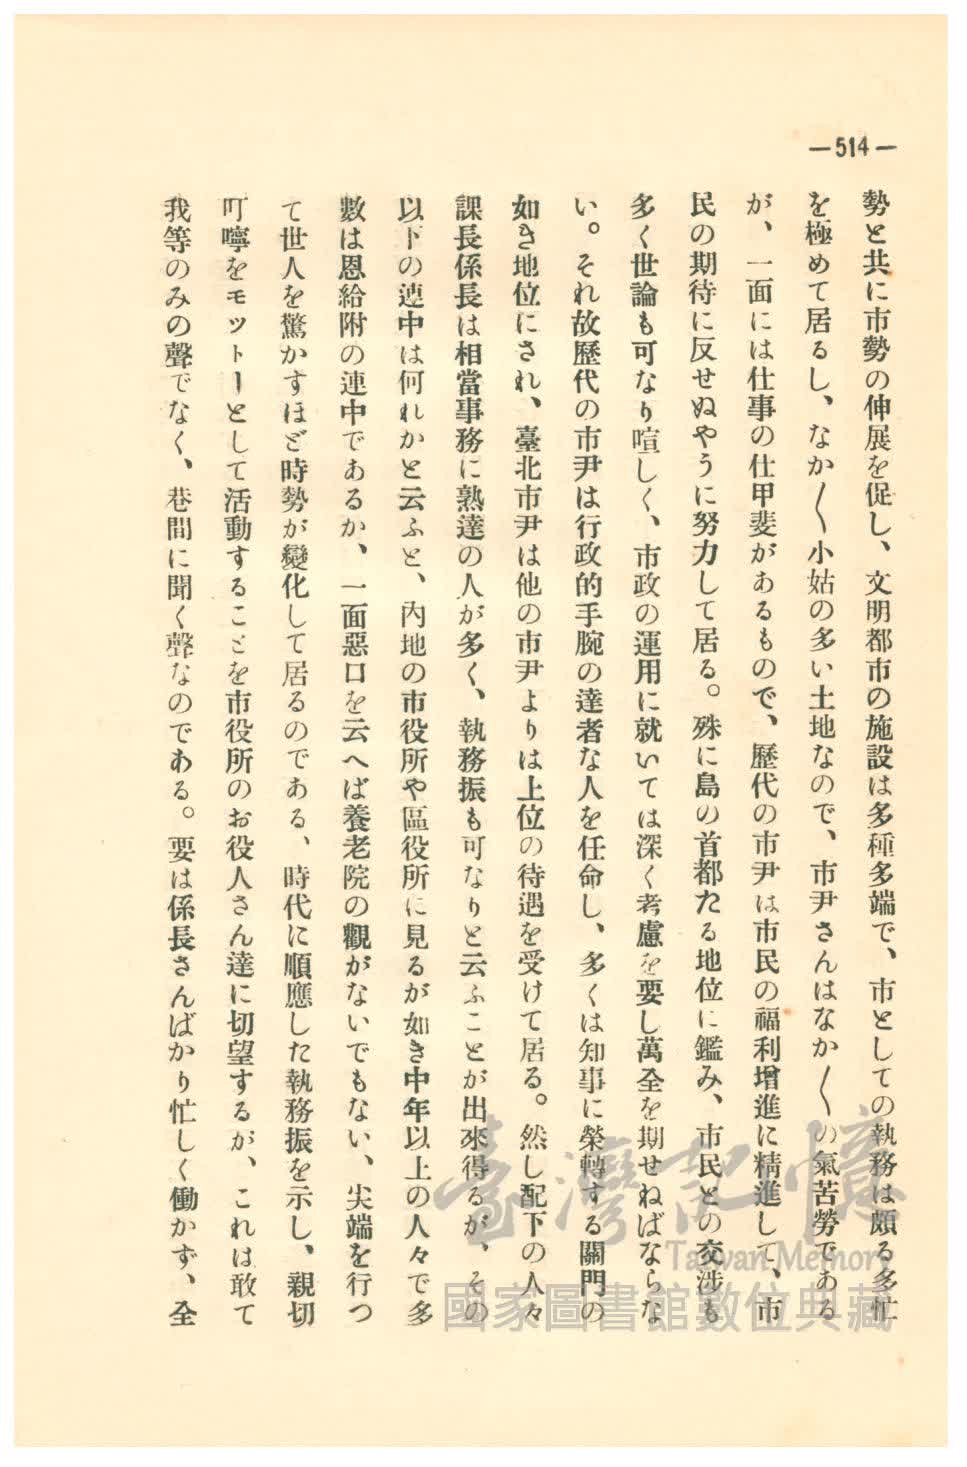 —514—
勢と共に市勢の伸展を促し、文明都市の施設は多種多端で、市としての執務は頗る多忙
を極めて居るし、なか〱小姑の多い土地なので、市尹さんはなか〱の氣苦勞である
が、一面には仕事の仕甲斐があるもので、歷代の市尹は市民の福利增進に精進して、市
民の期待に反せぬやうに努力して居る。殊に島の首都たる地位に鑑み、市民との交渉も
多く世論も可なり喧しく、市政の運用に就いては深く考慮を要し萬全を期せねばならな
い。それ故歷代の市尹は行政的手腕の達者な人を任命し、多くは知事に榮轉する關門の
如き地位にされ、臺北市尹は他の市尹よりは上位の待遇を受けて居る。然し配下の人々
課長係長は相當事務に熟達の人が多く、執務振も可なりと云ふことが出來得るが、その
以下の連中は何れかと云ふと、內地の市役所や區役所に見るが如き中年以上の人々で多
數は恩給附の連中であるか、一面惡口を云へば養老院の觀がないでもない、尖端を行つ
て世人を驚かすほど時勢が變化して居るのである、時代に順應した執務振を示し、親切
叮嚀をモットーとして活動することを市役所のお役人さん達に切望するが、これは敢て
我等のみの聲でなく、巷間に聞く聲なのである。要は係長さんばかり忙しく働かず、全
臺灣記憶
Taiwan Memory
國家圖書館數位典藏